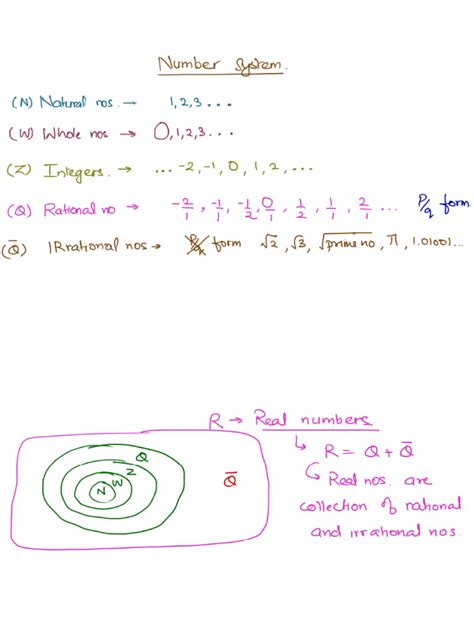 Number System.
(N) Natural nos. → 1, 2, 3 ...
(W) Whole nos → 0, 1, 2, 3 ...
(Z) Integers. → ... -2, -1, 0, 1, 2, ...
(Q) Rational no → -2/1, -1/1, -1/2, 0/1, 1/2, 1/1, 2/1 ... P/q form
(Q̅) IRrational nos → P/q form √2, √3, √prime no, π, 1.01001...
R → Real numbers.
↳ R = Q + Q̅
↳ Real nos. are
collection of rational
and irrational nos.
Q
Z
W
N
Q̅